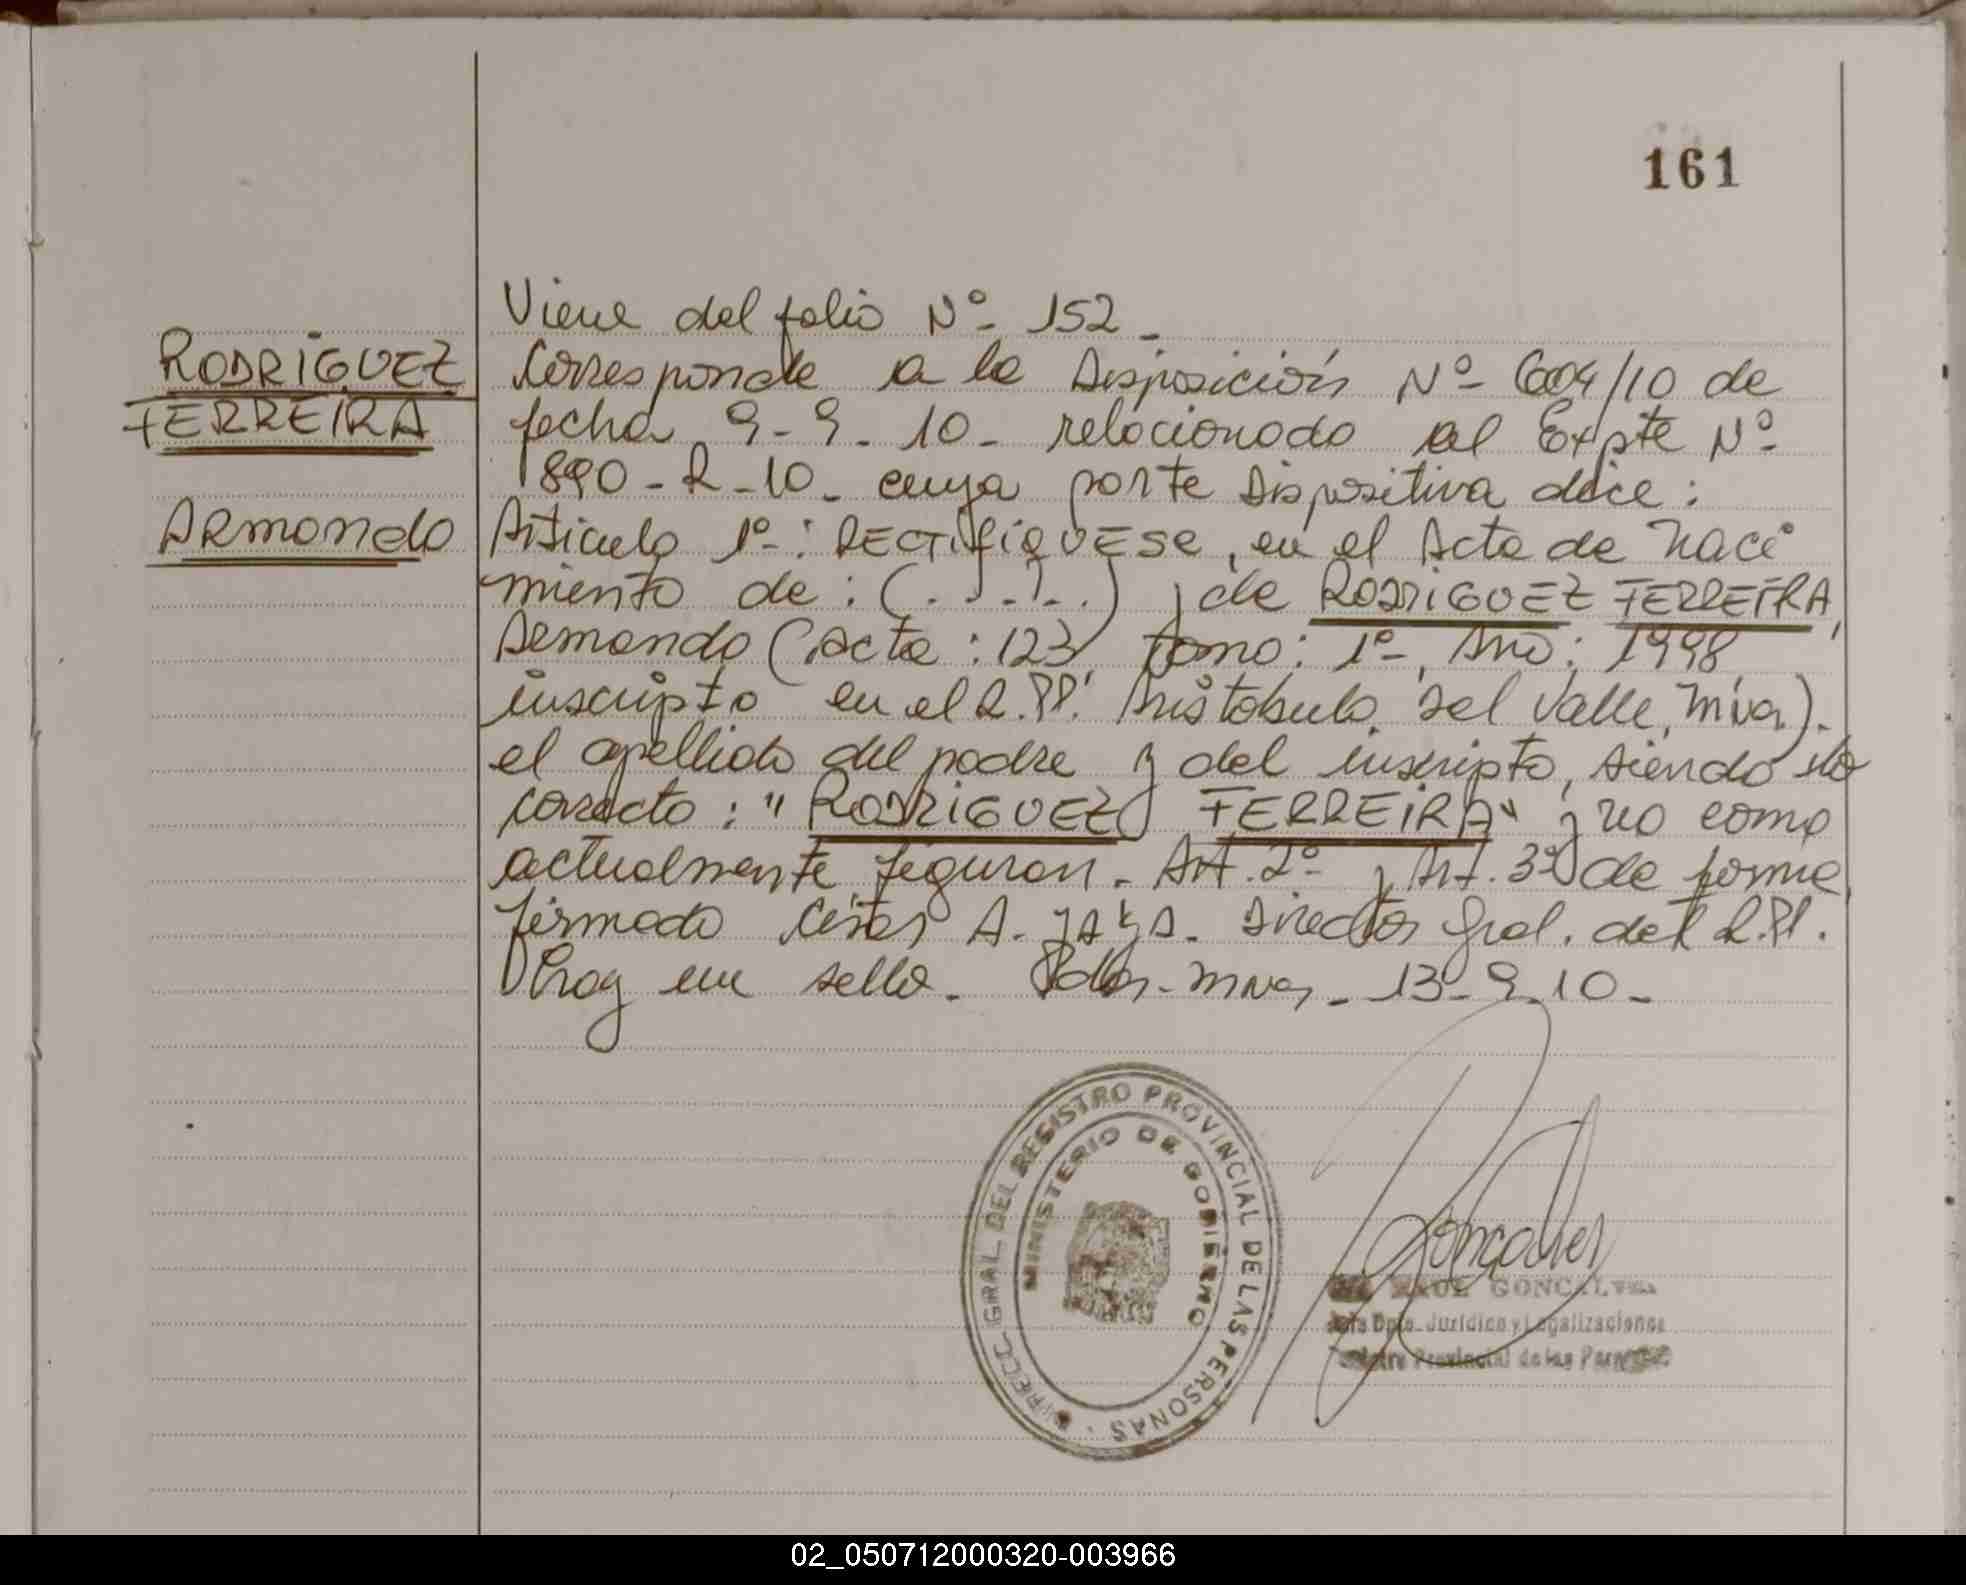 161
RODRIGUEZ
FERREIRA
Armando
Viene del folio Nº 152 -
Corresponde a la Disposición Nº 604/10 de
fecha 9-9-10- relacionado al Expte Nº
1890-R-10- cuya parte dispositiva dice:
Artículo 1º: RECTIFIQUESE, en el Acta de Naci
miento de: (......) y de RODRIGUEZ FERREIRA,
Armando (Acta: 123, Tomo: 1º, Año: 1998,
inscripto en el R.PP. Aristobulo del Valle, Mnes).
el apellido del padre y del inscripto, siendo lo
correcto: "RODRIGUEZ FERREIRA" y no como
actualmente figuran. Art. 2º y Art. 3º de forma,
firmado César A. Director Gral. del R.PP.
Hay un sello. Pdas-Mnes, - 13-9-10-
DIRECC. GRAL. DEL REGISTRO PROVINCIAL DE LAS PERSONAS
MINISTERIO DE GOBIERNO
Goncalves
RAUL GONCALVES
Jefe Dpto. Jurídico y Legalizaciones
Registro Provincial de las Personas
02_050712000320-003966